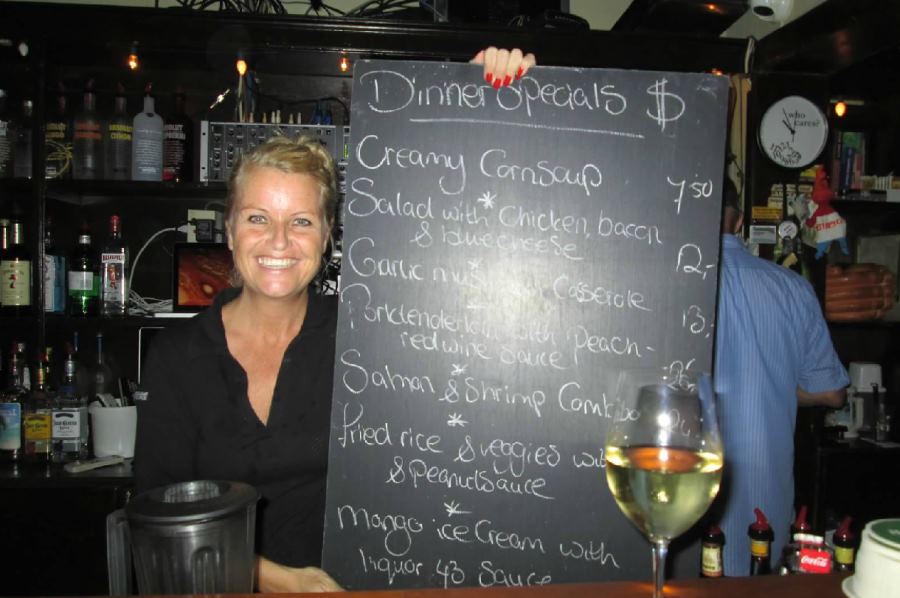 Dinner Specials $
Creamy Cornsoup 7,50
*
Salad with Chicken, bacon
& bluecheese 12,-
*
Garlic Casserole 13,-
Porktenderloin with Peach-
redwine sauce
*
Salmon & Shrimp Combo
*
Fried rice & veggies
& peanutsauce
*
Mango ice Cream with
liquor 43 Sauce
who
cares?
ABSOLUT
Coca-Cola